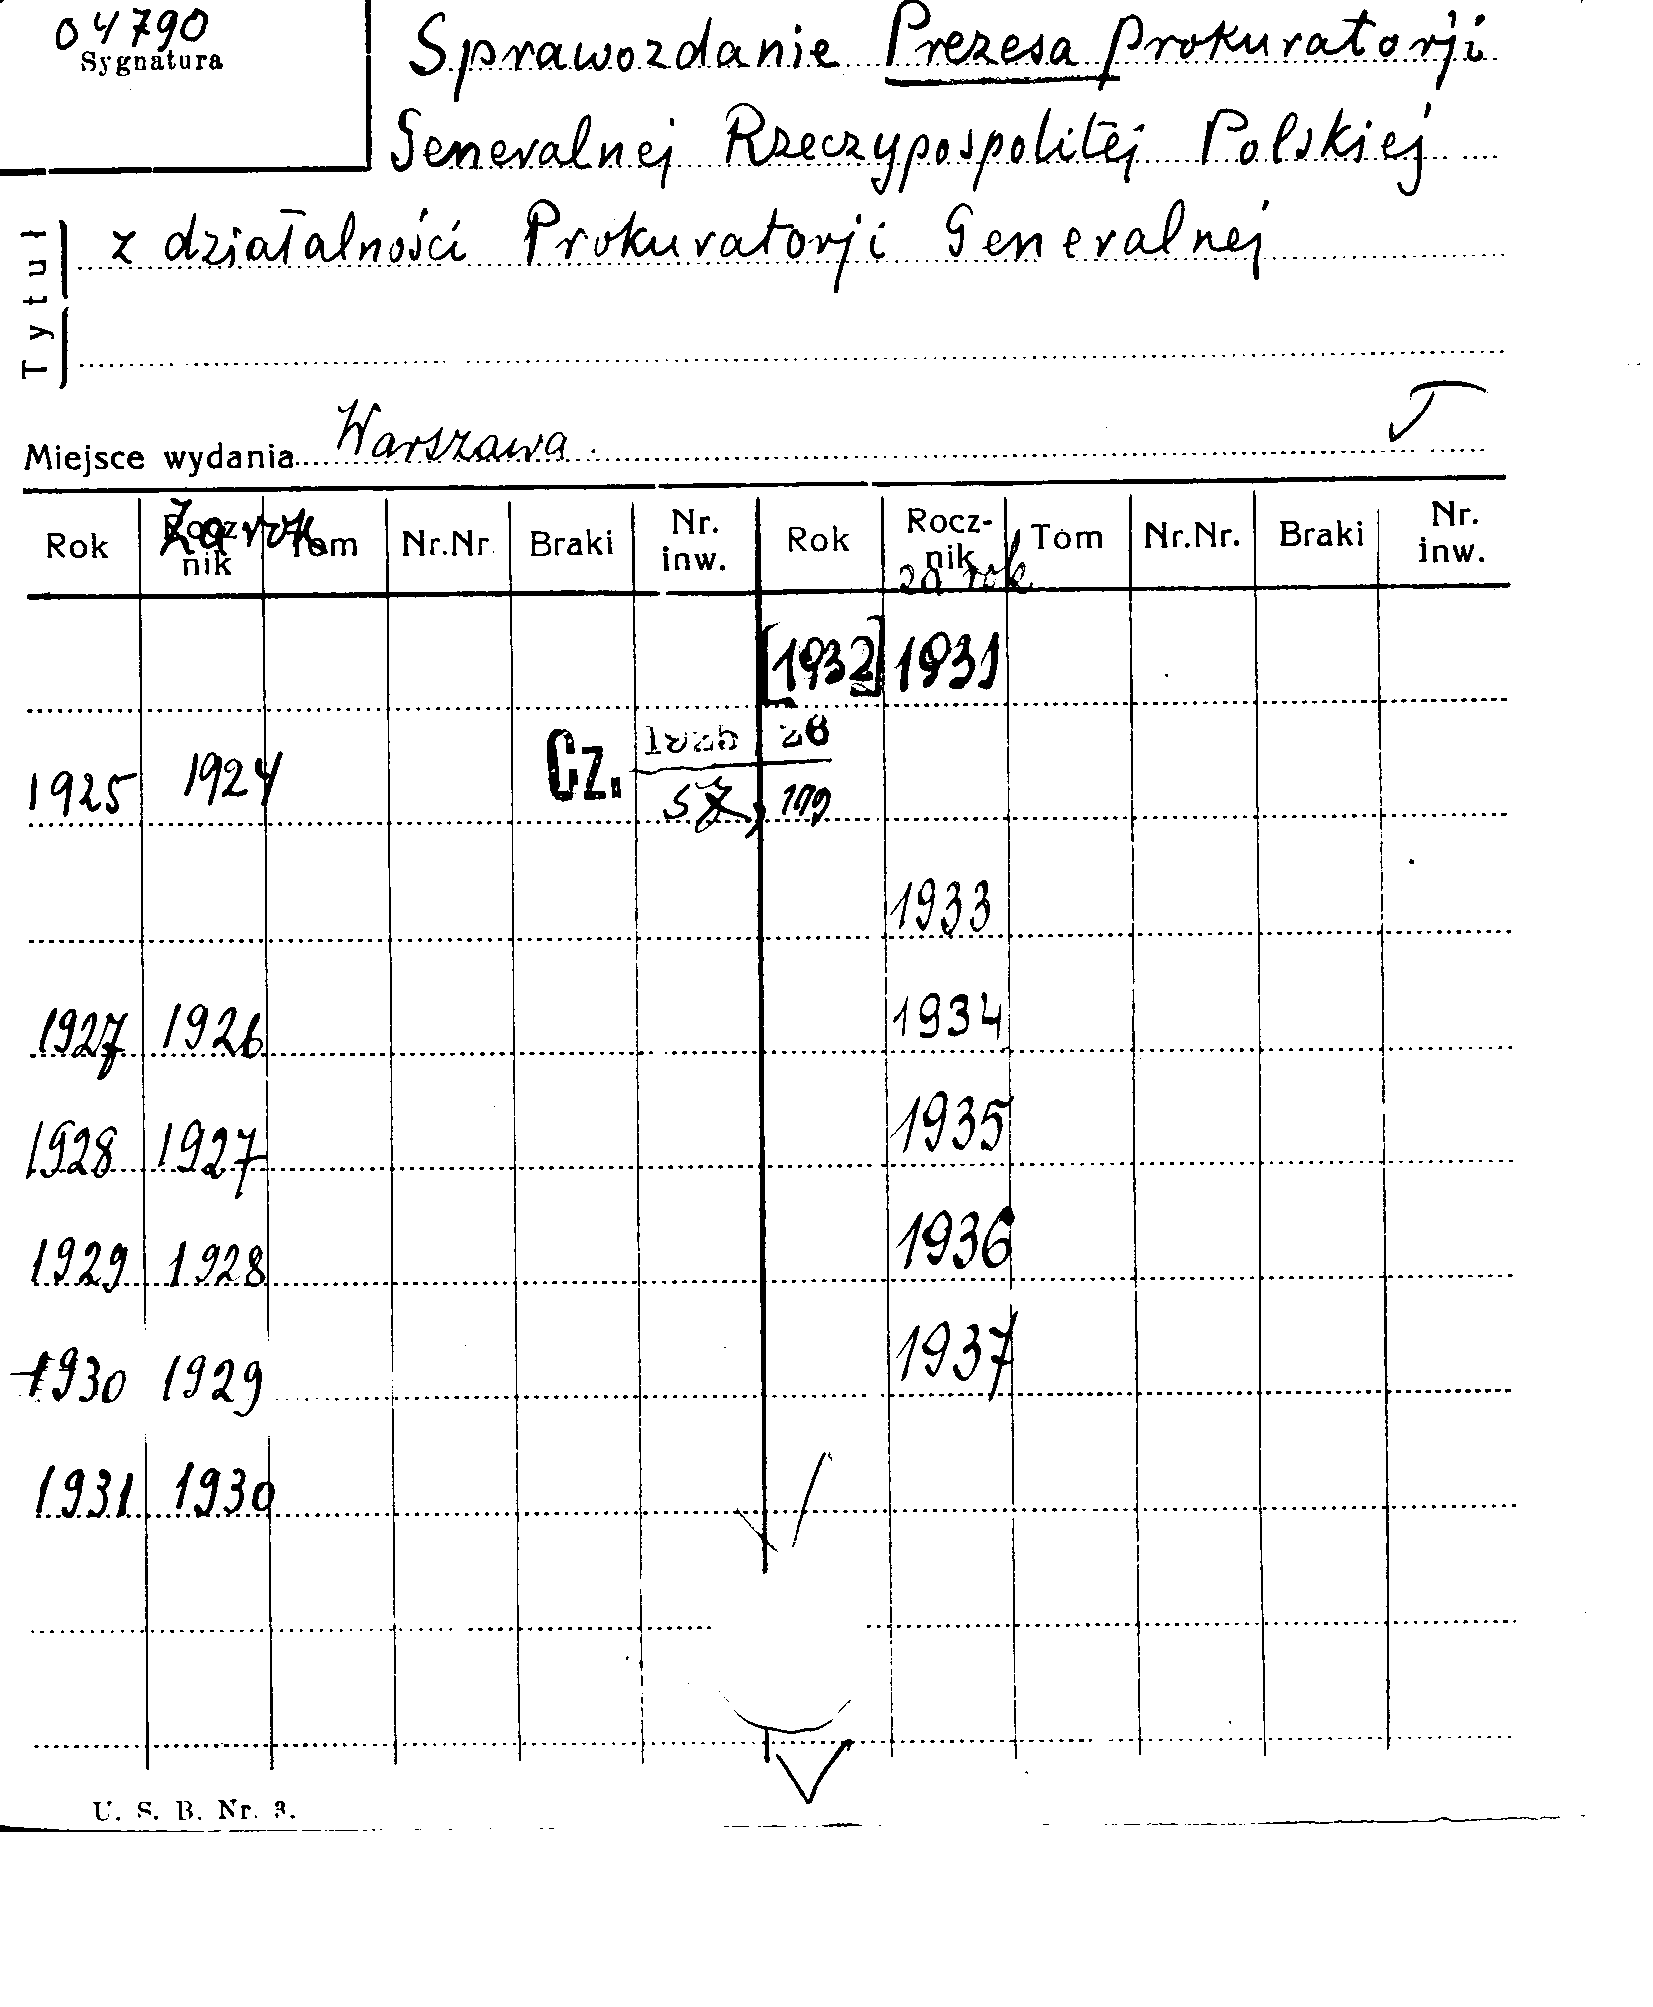 04790
Sygnatura
Sprawozdanie Prezesa Prokuratorji
Generalnej Rzeczypospolitej Polskiej
Tytuł
z działalności Prokuratorji Generalnej
Miejsce wydania Warszawa.
Rok Rocznik Za rok Tom Nr.Nr. Braki Nr. inw. Rok Rocz-nik za rok Tom Nr.Nr. Braki Nr. inw.
[1932] 1931
1925 1924 Cz.
1933
1927 1926 1934
1928 1927 1935
1929 1928 1936
1930 1929 1937
1931 1930
U. S. B. Nr. 3.